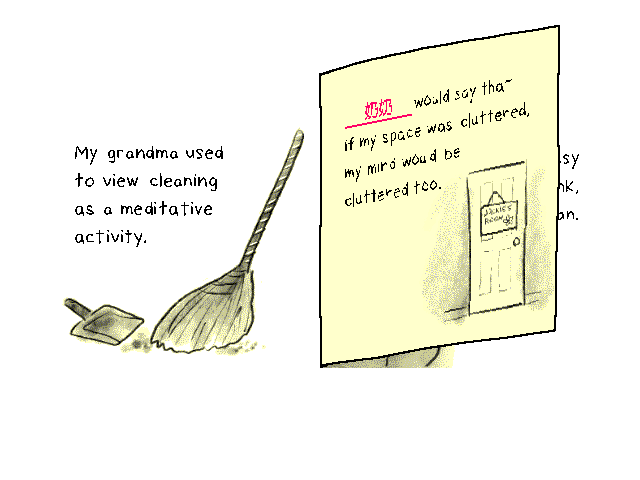 My grandma used
to view cleaning
as a meditative
activity.
奶奶 would say tha
if my space was cluttered,
my mind woud be
cluttered too.
JACKIE'S
ROOM
sy
nk,
an.